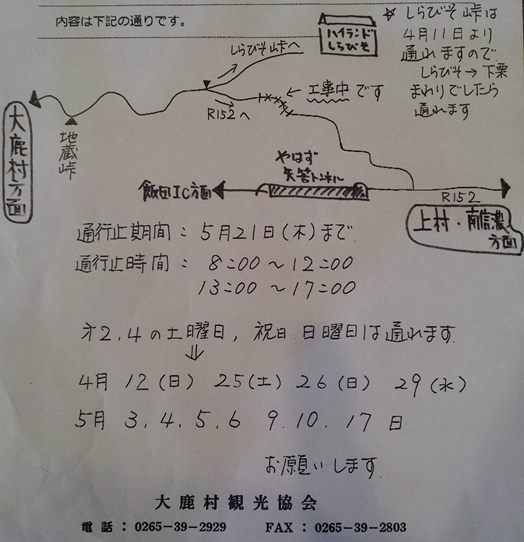 内容は下記の通りです。
ハイランド
しらびそ
☆ しらびそ峠は
4月11日より
通れますので
しらびそ→下栗
まわりでしたら
通れます
しらびそ峠へ
工事中です
R152へ
大鹿村方面
地蔵峠
やはず
矢筈トンネル
飯田IC方面
R152
上村・南信濃
方面
通行止期間: 5月21日(木)まで
通行止時間: 8:00 ~ 12:00
13:00 ~ 17:00
才2,4の土曜日, 祝日 日曜日は通れます
4月 12(日) 25(土) 26(日) 29(水)
5月 3, 4, 5, 6 9, 10, 17 日
お願いします
大鹿村観光協会
電話:0265-39-2929 FAX:0265-39-2803